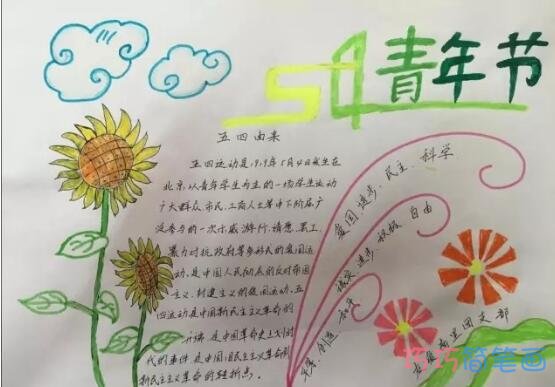 54青年节
五四由来
五四运动是1919年5月4日发生在
北京,以青年学生为主的一场学生运动
广大群众、市民、工商人士等中下阶层广
泛参与的一次示威游行、请愿、罢工、
暴力对抗政府等多形式的爱国运
动,是中国人民彻底的反对帝国
主义、封建主义的爱国运动,五
四运动是中国新民主主义革命的
开端,是中国革命史上划时
代的事件,是中国旧民主主义革命到
新民主主义革命的转折点。
爱国、进步、民主、科学
诚实、进步、积极、自由
创造、和平
里团支部
巧巧简笔画